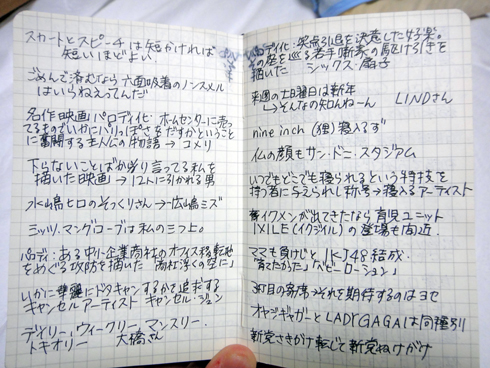 スカートとスピーチは短かければ
短いほどよい.
ごめんで済むなら六面吸着のノンスメル
はいらねぇってんだ
名作映画パロディ化: ホームセンターに売っ
てるものでいかにパリっぽさをだすかということ
に奮闘する主人公の物語→コメリ
下らないことばかり言ってる私を
描いた映画→12人に引かれる男
水嶋ヒロのそっくりさん→広嶋ミズ
ミッツ.マングローブは私の三つ上。
パロディ: ある中小企業商社のオフィス移転地
をめぐる攻防を描いた「商社浮くの空に」
いかに華麗にドタキャンするかを追求する
キャンセルアーティスト キャンセル・ジュン
デイリー、ウィークリー、マンスリー、
トキオリー 大橋さん
パロディ化: 笑点引退を決意した好楽。
その座を巡る若手噺家の駆け引きを
描いた シックス・扇子
来週の土曜日は新年
→そんなの知んね~ん LINDさん
nine inch (狸)寝入るず
仏の顔もサン・ドニ・スタジアム
いつでもどこでも寝られるという特技を
持つ者に与えられし称号→寝入るアーティスト
イクメンが出てきたなら育児ユニット
IXILE(イクジイル)の登場も間近.
ママも負けじとIKJ48結成.
「育てたかった」「ベビーローション」
3町目の寄席→それを期待するのはヨセ
オヤジギャガーとLADY GAGAは同種別
新党さきがけ転じて新党ぬけがけ